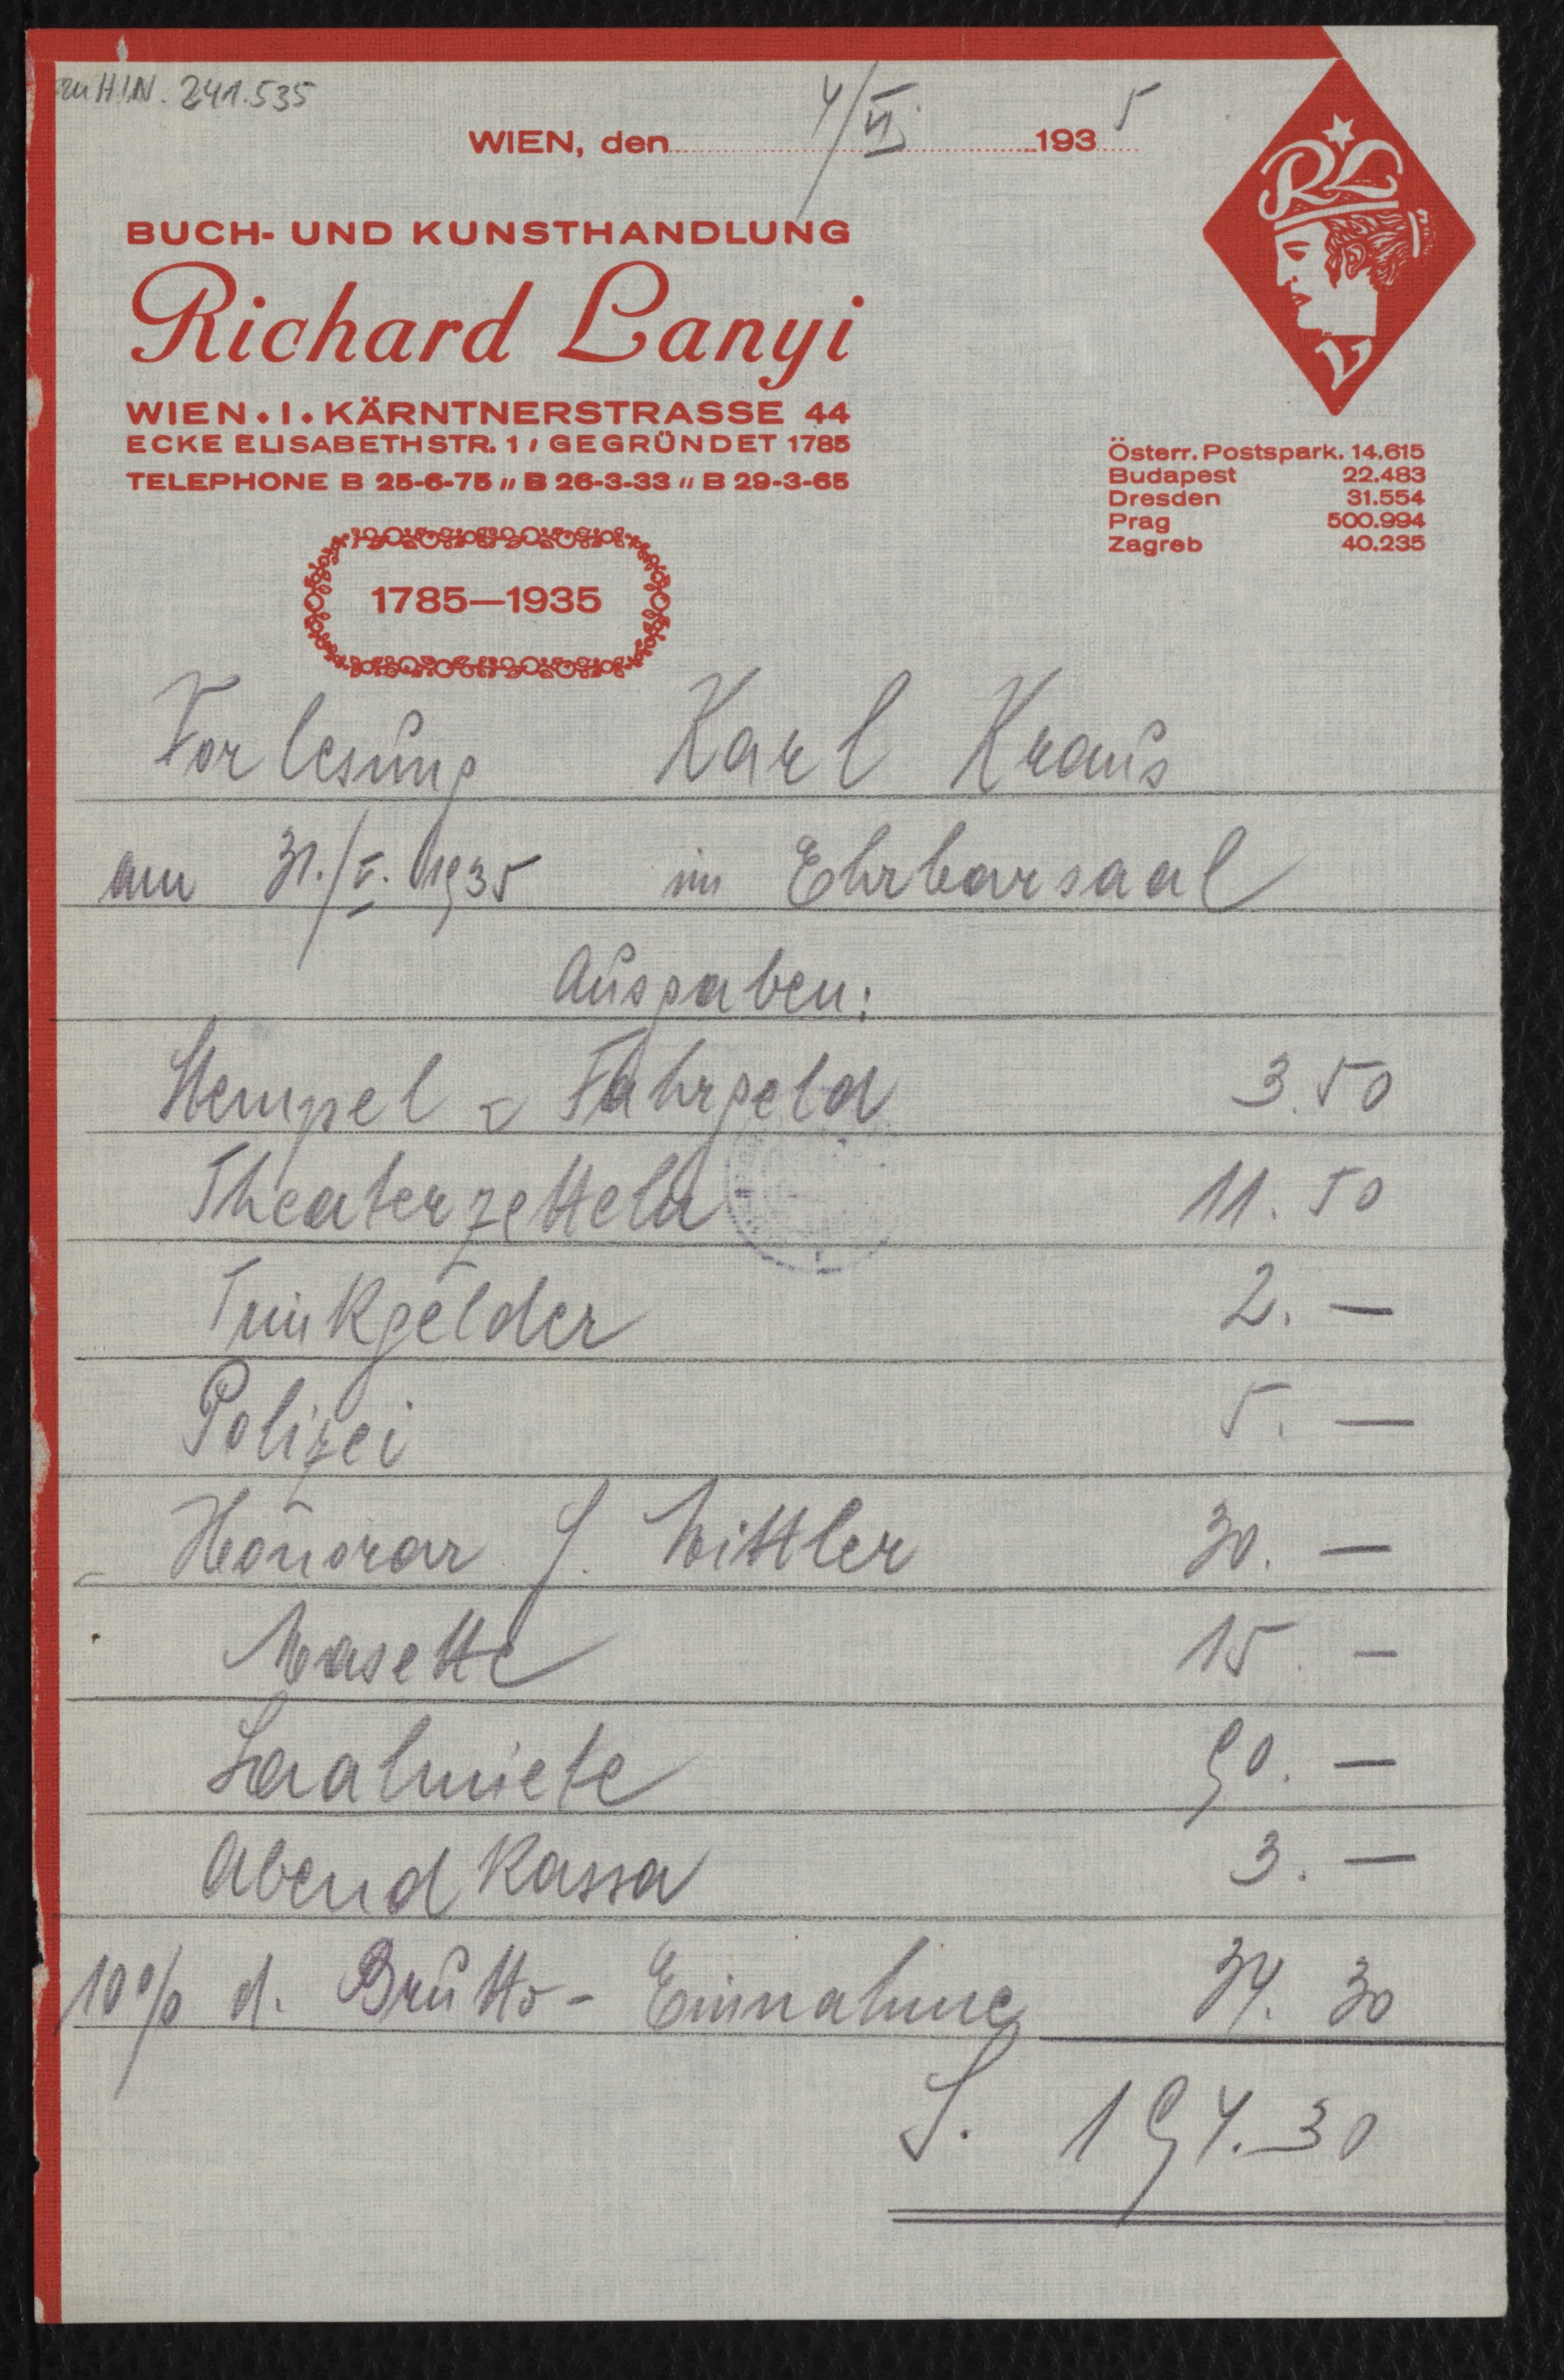 zu H.I.N. 241.535
WIEN, den 4/VI. 1935
RL
BUCH- UND KUNSTHANDLUNG
Richard Lanyi
WIEN • I • KÄRNTNERSTRASSE 44
ECKE ELISABETHSTR. 1 / GEGRÜNDET 1785
TELEPHONE B 25-6-75 // B 26-3-33 // B 29-3-65
Österr. Postspark. 14.615
Budapest 22.483
Dresden 31.554
Prag 500.994
Zagreb 40.235
1785—1935
Vorlesung Karl Kraus
am 31./V. 1935 im Ehrbarsaal
Ausgaben:
Stempel Fahrgeld 3.50
Theaterzetteln 11.50
Trinkgelder 2.—
Polizei 5.—
Honorar f. Mittler 30.—
Masette 15.—
Saalmiete 90.—
Abendkassa 3.—
10% d. Brutto-Einnahme 34.30
S. 194.30